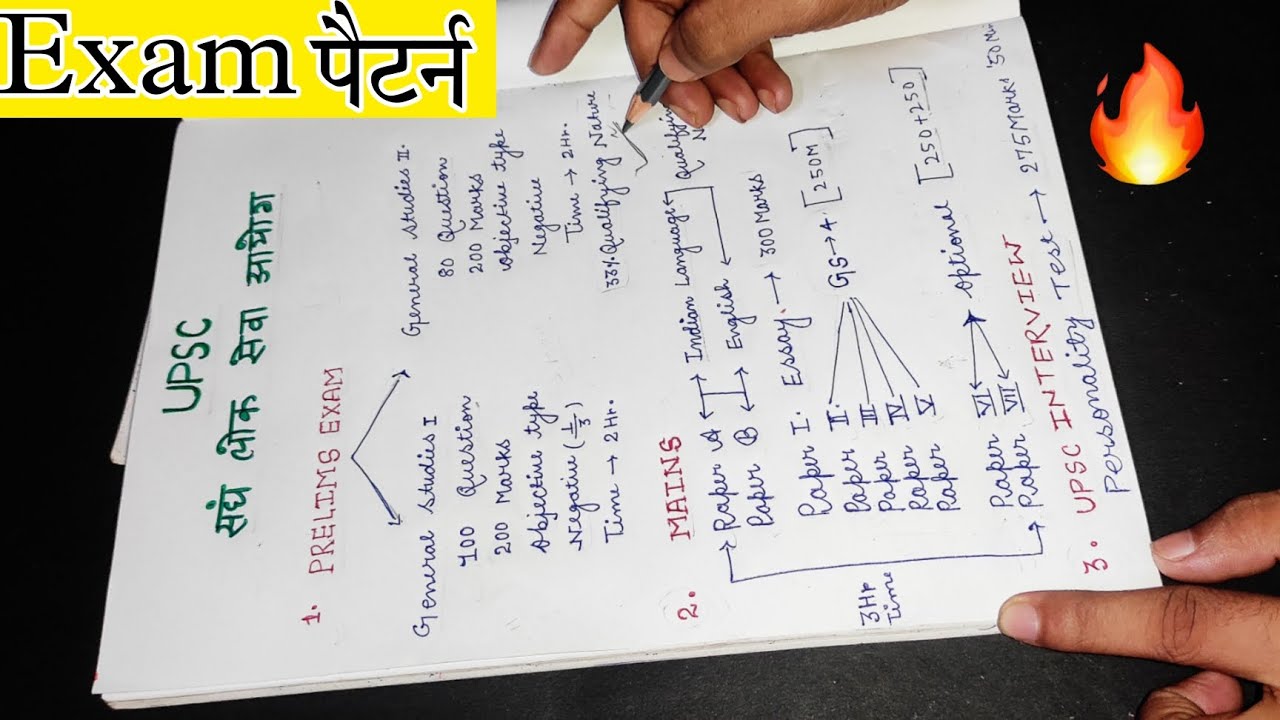 Exam पैटर्न
UPSC
संघ लोक सेवा आयोग
1. PRELIMS EXAM
General Studies I
100 Question
200 Marks
Objective type
Negative (1/3)
Time → 2Hr.
General Studies II.
80 Question
200 Marks
Objective type
Negative
Time → 2Hr.
33% Qualifying Nature
2. MAINS
Paper A ↔ Indian Language
Paper B ↔ English
Qualifying
Paper I. Essay. → 300 Marks
Paper II.
Paper III
Paper IV
Paper V
GS → 4 [250M]
Paper VI
Paper VII
Optional [250+250]
3Hr
Time
3. UPSC INTERVIEW
Personality Test → 275 Marks